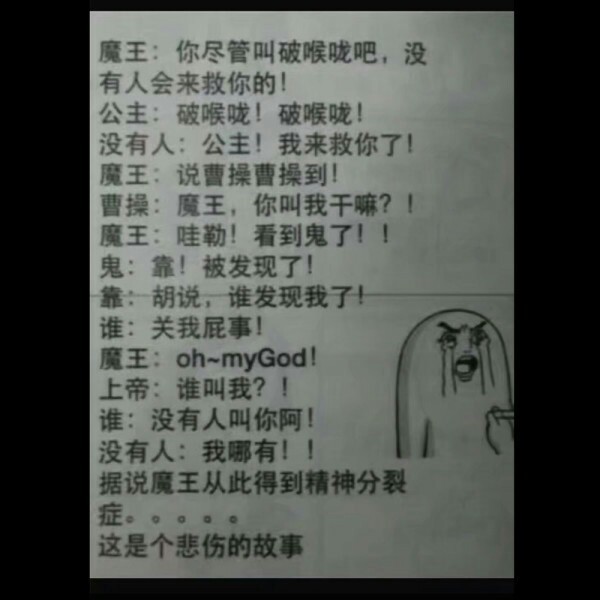 魔王：你尽管叫破喉咙吧，没
有人会来救你的！
公主：破喉咙！破喉咙！
没有人：公主！我来救你了！
魔王：说曹操曹操到！
曹操：魔王，你叫我干嘛？！
魔王：哇勒！看到鬼了！！
鬼：靠！被发现了！
靠：胡说，谁发现我了！
谁：关我屁事！
魔王：oh~myGod！
上帝：谁叫我？！
谁：没有人叫你阿！
没有人：我哪有！！
据说魔王从此得到精神分裂
症。。。。。
这是个悲伤的故事